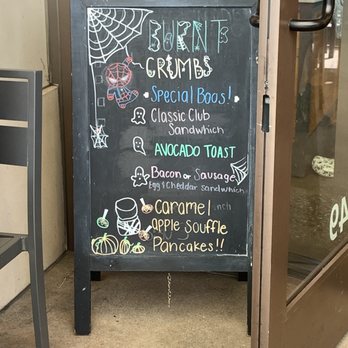 BURNT
CRUMBS
Special Boos!
Classic Club
Sandwhich
AVOCADO TOAST
Bacon or Sausage
Egg & Cheddar Sandwhich
Caramel
apple Souffle
Pancakes!!